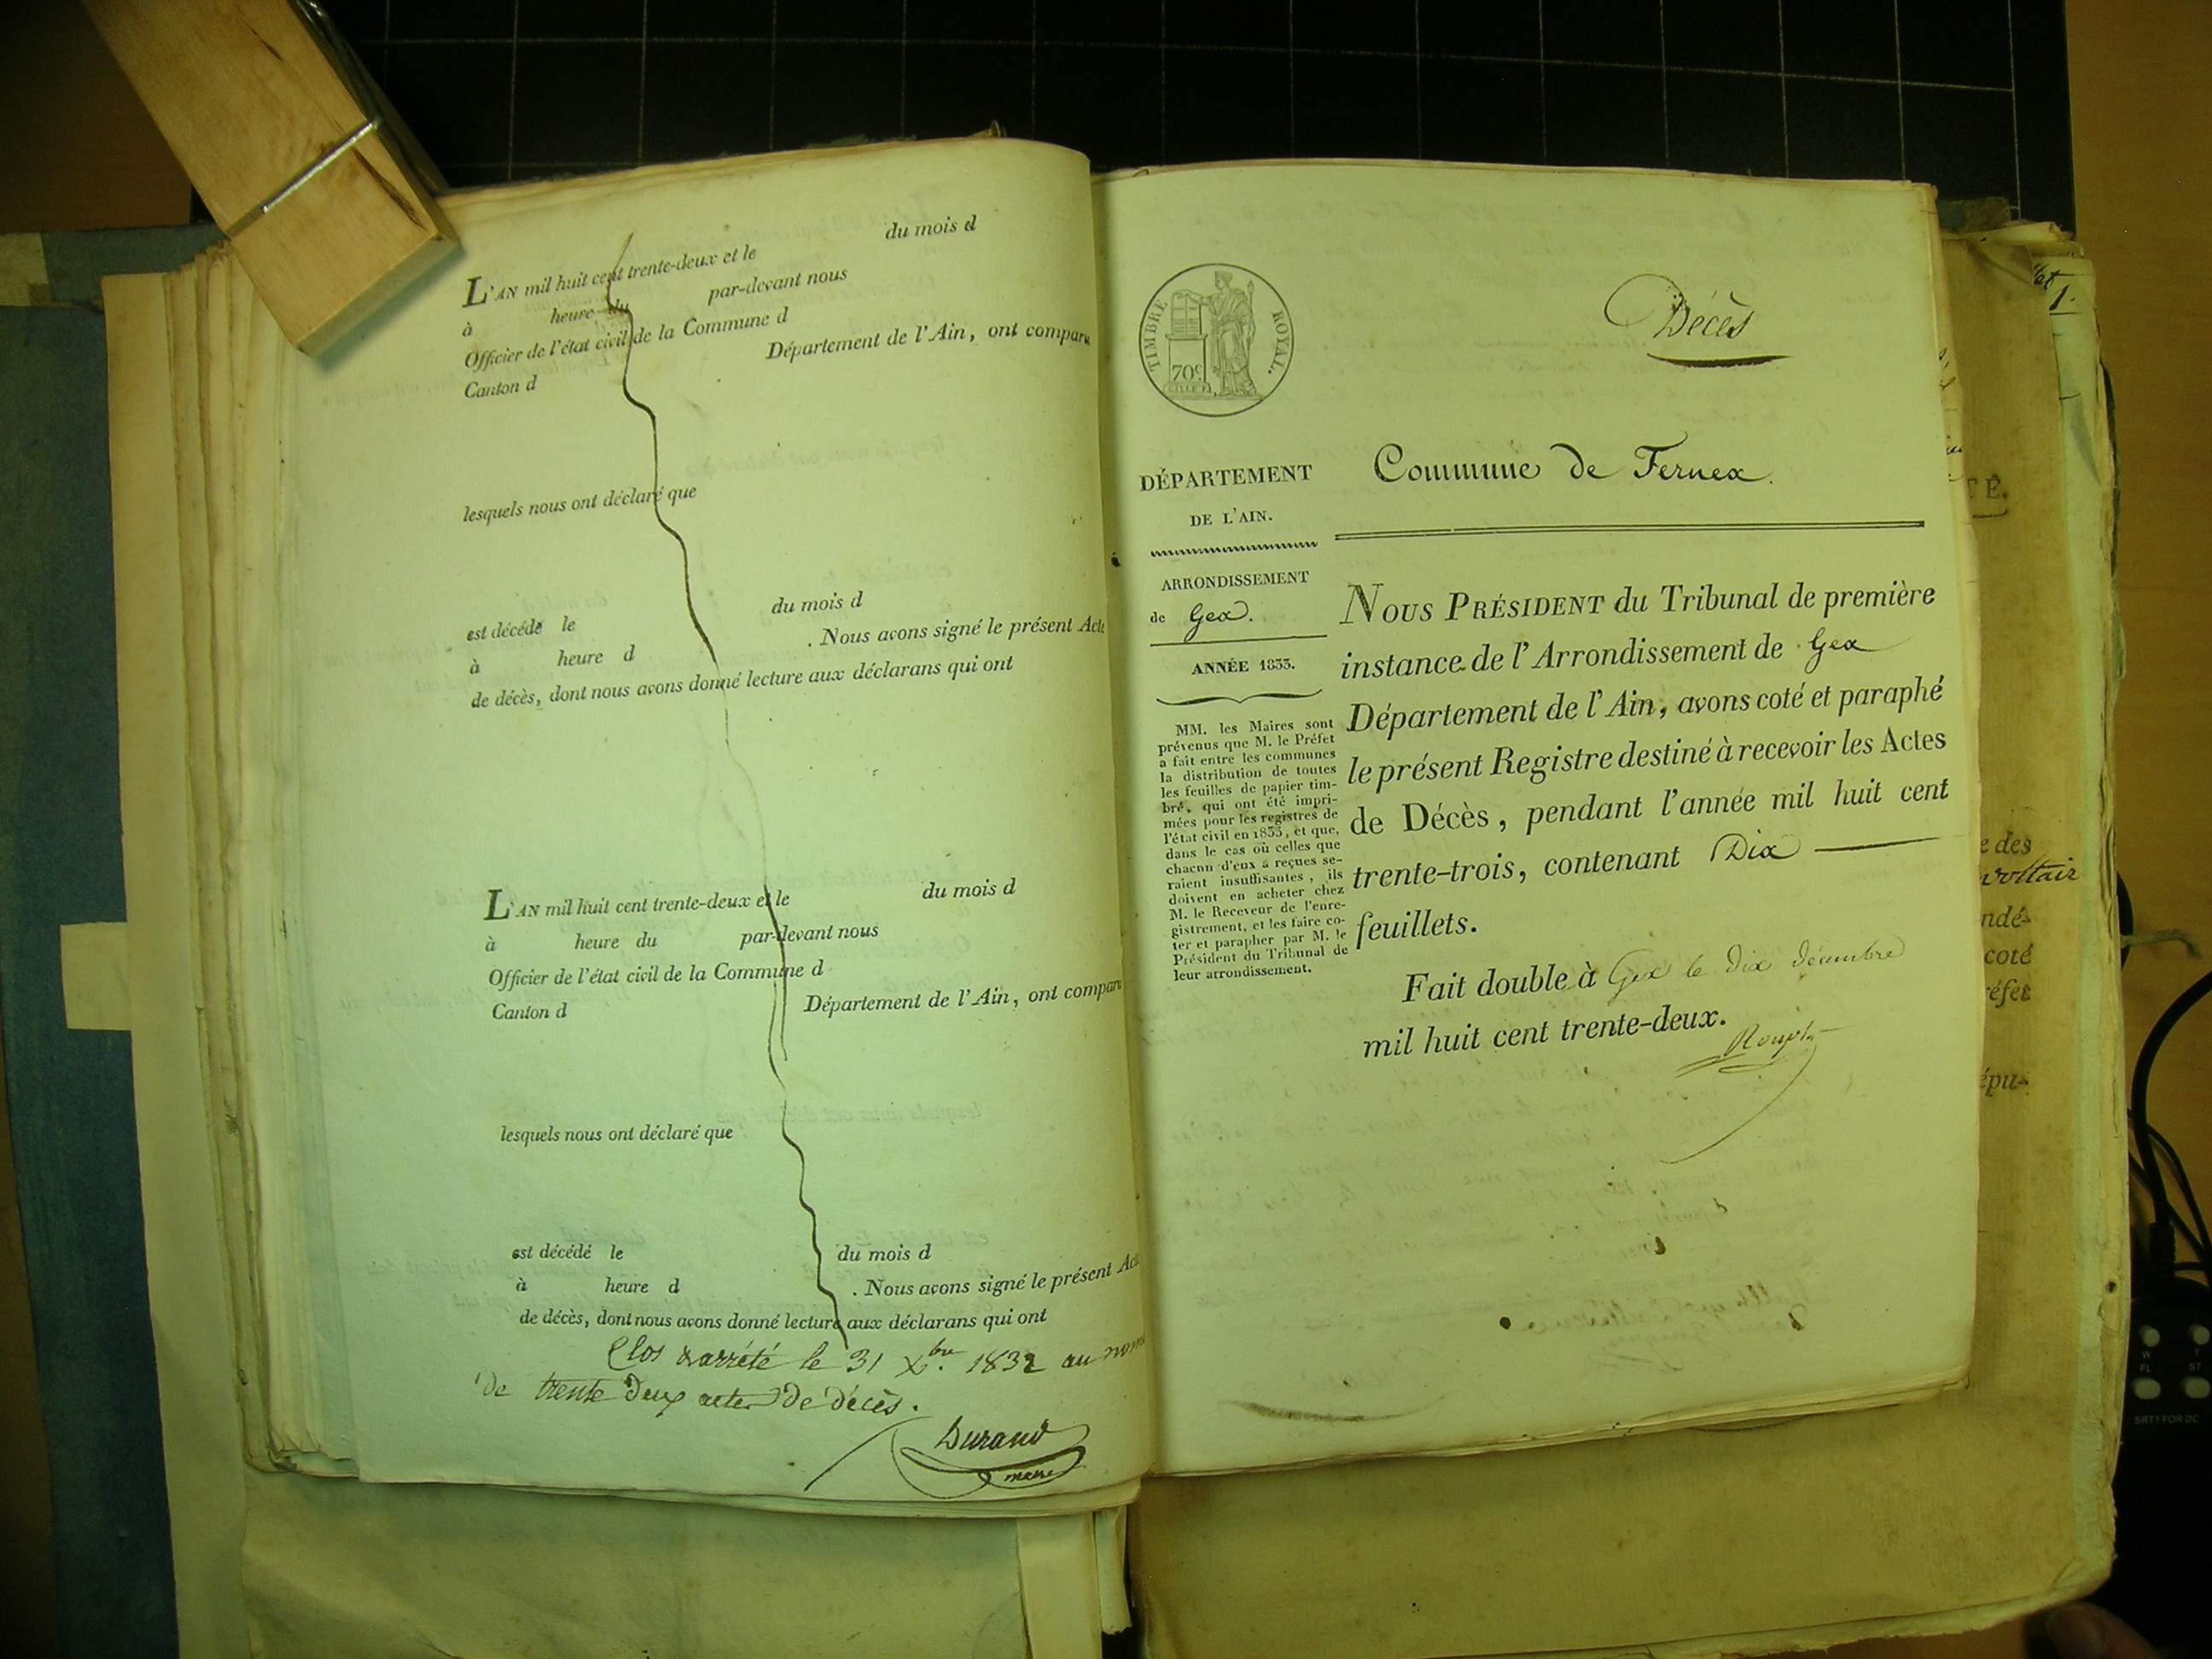 L'AN mil huit cent trente-deux et le du mois d
à heure du par-devant nous
Officier de l'état civil de la Commune d
Canton d Département de l'Ain, ont comparu
lesquels nous ont déclaré que
est décédé le du mois d
à heure d . Nous avons signé le présent Acte
de décès, dont nous avons donné lecture aux déclarans qui ont
L'AN mil huit cent trente-deux et le du mois d
à heure du par-devant nous
Officier de l'état civil de la Commune d
Canton d Département de l'Ain, ont comparu
lesquels nous ont déclaré que
est décédé le du mois d
à heure d . Nous avons signé le présent Acte
de décès, dont nous avons donné lecture aux déclarans qui ont
Clos & arrêté le 31 Xbre 1832 au nom
de trente deux actes de décès.
Durand
maire
TIMBRE ROYAL.
70c
Décès
DÉPARTEMENT
DE L'AIN.
Commune de Fernex.
ARRONDISSEMENT
de Gex.
ANNÉE 1833.
MM. les Maires sont
prévenus que M. le Préfet
a fait entre les communes
la distribution de toutes
les feuilles de papier tim-
bré, qui ont été impri-
mées pour les registres de
l'état civil en 1833, et que,
dans le cas où celles que
chacun d'eux a reçues se-
raient insuffisantes, ils
doivent en acheter chez
M. le Receveur de l'enre-
gistrement, et les faire co-
ter et parapher par M. le
Président du Tribunal de
leur arrondissement.
NOUS PRÉSIDENT du Tribunal de première
instance de l'Arrondissement de Gex
Département de l'Ain, avons coté et paraphé
le présent Registre destiné à recevoir les Actes
de Décès, pendant l'année mil huit cent
trente-trois, contenant Dix
feuillets.
Fait double à Gex le dix décembre
mil huit cent trente-deux.
É.
e des
voltair
ndé-
coté
réfet
épu-
W T
FL ST
SRT! FOR DC